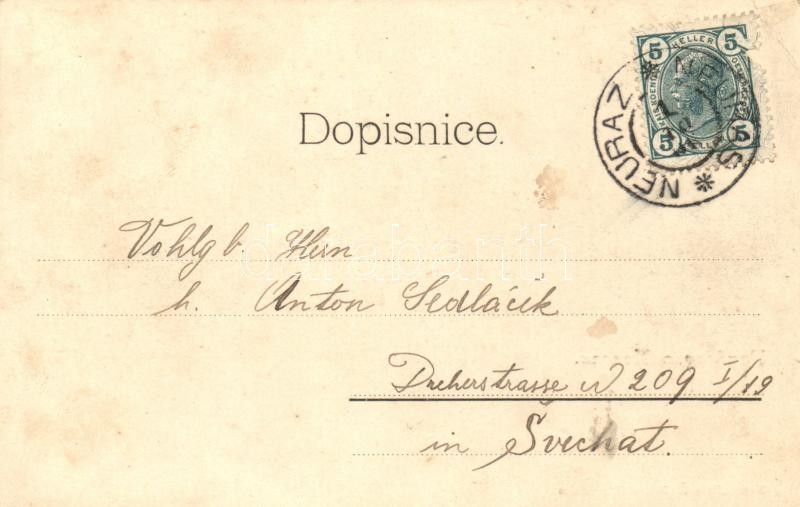 5 HELLER 5
5 HELLER 5
NEURAZ
Dopisnice.
darabanth
Vohlg b. Hern
h. Anton Sedláček
Dreherstrasse N 209 I/19
in Svechat.